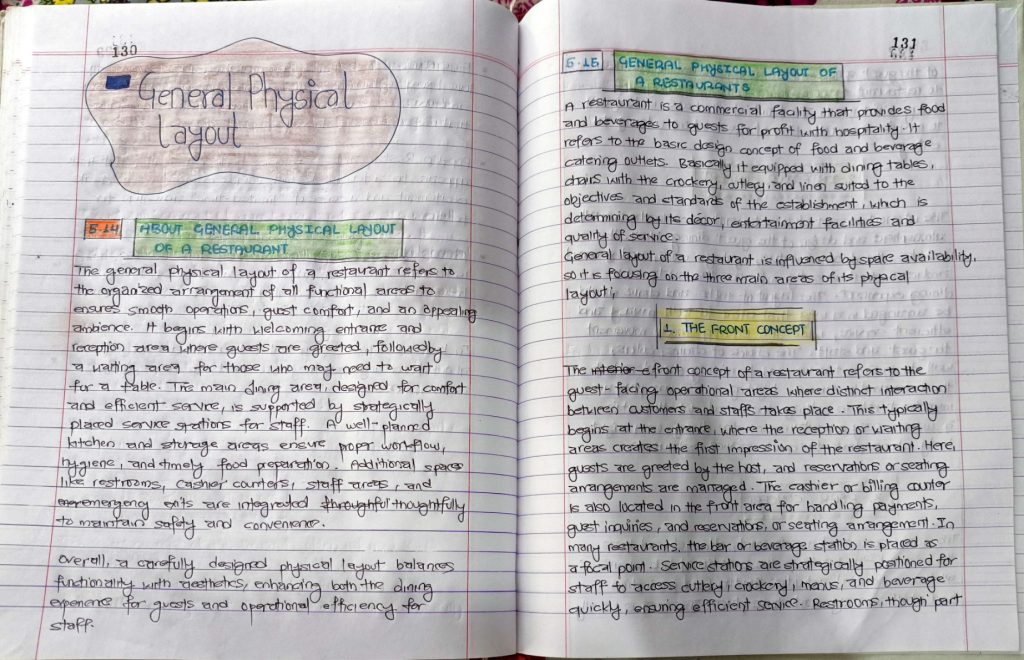 130
General Physical
layout
5.14 ABOUT GENERAL PHYSICAL LAYOUT
OF A RESTAURANT
The general physical layout of a restaurant refers to
the organized arrangement of all functional areas to
ensures smooth operations, guest comfort, and an appealing
ambience. It begins with welcoming entrance and
reception area where guests are greeted, followed by
a waiting area for those who may need to wait
for a table. The main dining area, designed for comfort
and efficient service, is supported by strategically
placed service stations for staff. A well-planned
kitchen and storage areas ensure proper workflow,
hygiene, and timely food preparation. Additional spaces
like restrooms, cashier counters, staff areas, and
emergengy exits are integrated throughful thoughtfully
to maintain safety and convenience.
Overall, a carefully designed physical layout balances
functionality with aesthetics, enhancing both the dining
experience for guests and operational efficiency for
staff.
131
5.15 GENERAL PHYSICAL LAYOUT OF
A RESTAURANTS
A restaurant is a commercial facility that provides food
and beverages to guests for profit with hospitality. It
refers to the basic design concept of food and beverage
catering outlets. Basically it equipped with dining tables,
chairs with the crockery, cutlery, and linen suited to the
objectives and standards of the establishment, which is
determining by its décor, entertaiment facilities and
quality of service.
General layout of a restaurant is influenced by space availability,
so it is focusing on the three main areas of its physical
layout;
1. THE FRONT CONCEPT
The interior front concept of a restaurant refers to the
guest-facing operational areas where distinct interaction
between customers and staffs takes place. This typically
begins at the entrance, where the reception or waiting
areas creates the first impression of the restaurant. Here,
guests are greeted by the host, and reservations or seating
arrangements are managed. The cashier or billing counter
is also located in the front area for handling payments,
guest inquiries, and reservations, or seating arrangement. In
many restaurants, the bar or beverage station is placed as
a focal point. Service stations are strategically positioned for
staff to access cutlery, crockery, menus, and beverage
quickly, ensuring efficient service. Restrooms, though part